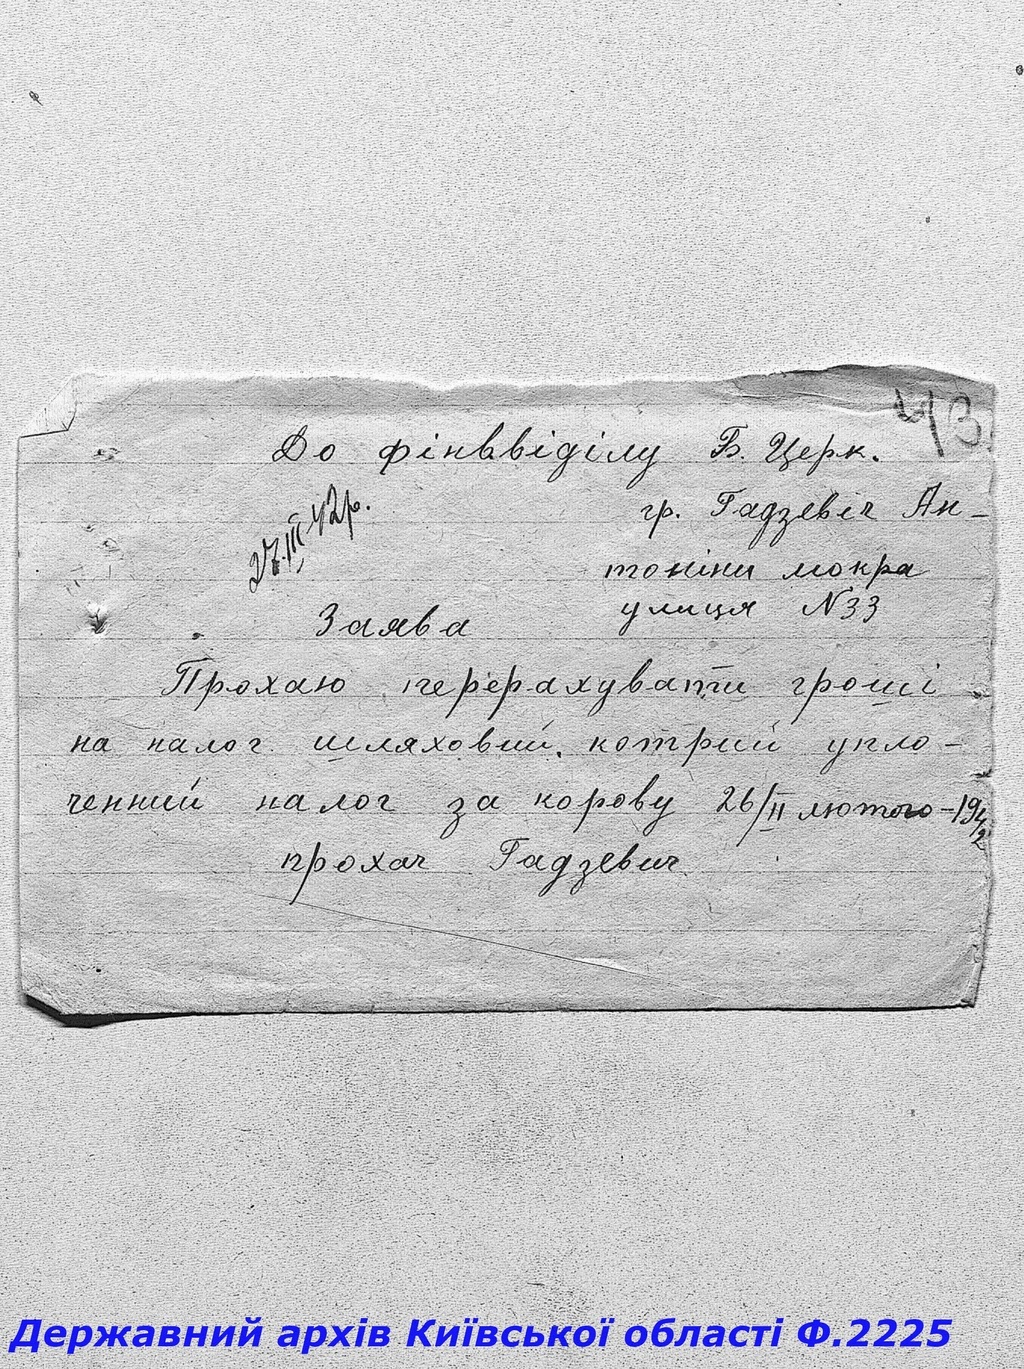 43
До фінввіділу Б. Церк.
27.III.42р.
гр. Гадзевіч Ан-
тоніни мокра
улиця N33
Заява
Прохаю перерахувати гроші
на налог шляховий, котрий упло-
ченний налог за корову 26/II лютого-1942
прохач Гадзевич
Державний архів Київської області Ф.2225